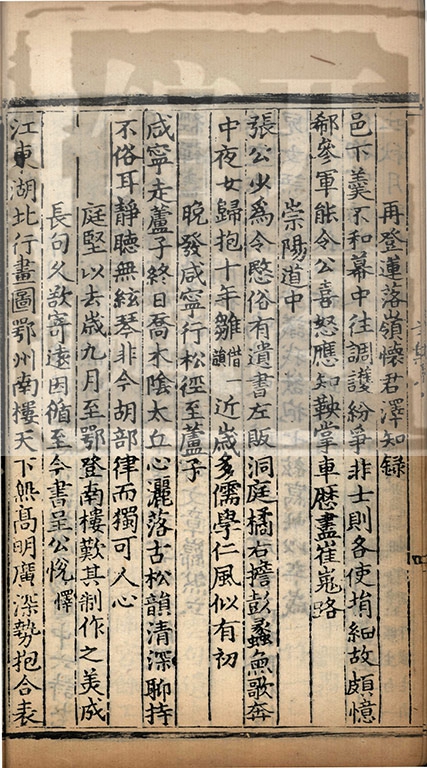 再登蓮落嶺懷君澤知錄
邑下羹不和幕中往調護紛爭非士則各使捐細故頗憶
郗參軍能令公喜怒應知鞅掌車歷盡崔嵬路
崇陽道中
張公少為令愍俗有遺書左販洞庭橘右擔彭蠡魚歌奔
中夜女歸抱十年雛借韻一近歲多儒學仁風似有初
晚發咸寧行松徑至蘆子
咸寧走蘆子終日喬木陰太丘心灑落古松韻清深聊持
不俗耳靜聽無絃琴非今胡部律而獨可人心
庭堅以去歲九月至鄂登南樓歎其制作之美成
長句久欲寄遠因循至今書呈公悅懌
江東湖北行畫圖鄂州南樓天下無高明廣深勢抱合表